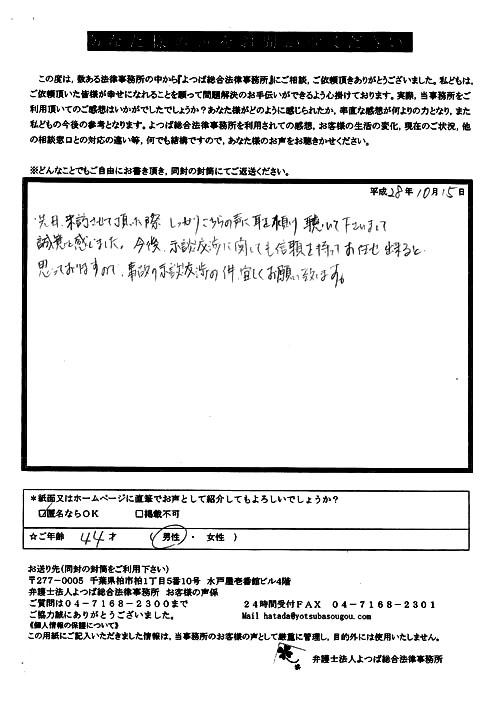 この度は，数ある法律事務所の中から『よつば総合法律事務所』にご相談，ご依頼頂きありがとうございました。私どもは，
ご依頼頂いた皆様が幸せになれることを願って問題解決のお手伝いができるよう心掛けております。実際，当事務所をご
利用頂いてのご感想はいかがでしたでしょうか？あなた様がどのように感じられたか，率直な感想が何よりの力となり，また
私どもの今後の参考となります。よつば総合法律事務所を利用されての感想，お客様の生活の変化，現在のご状況，他
の相談窓口との対応の違い等，何でも結構ですので，あなた様のお声をお聴きかせください。
※どんなことでもご自由にお書き頂き，同封の封筒にてご返送ください。
平成28年10月15日
先日、来訪させて頂いた際 しっかりこちらの声に耳を傾け 聴いて下さいまして
誠実と感じました。今後、示談交渉に関しても信頼を持ってお任せ出来ると
思っておりますので、事故の示談交渉の件、宜しくお願い致します。
＊紙面又はホームページに直筆でお声として紹介してもよろしいでしょうか？
☑匿名ならOK □掲載不可
☆ご年齢 44 才 （ 男性 ・ 女性 ）
お送り先（同封の封筒をご利用下さい）
〒277-0005 千葉県柏市柏1丁目5番10号 水戸屋壱番館ビル4階
弁護士法人よつば総合法律事務所 お客様の声係
ご質問は04-7168-2300まで 24時間受付FAX 04-7168-2301
ご協力誠にありがとうございました。 Mail hatada@yotsubasougou.com
《個人情報の保護について》
この用紙にご記入いただきました情報は，当事務所のお客様の声として厳重に管理し，目的外には使用いたしません。
弁護士法人よつば総合法律事務所